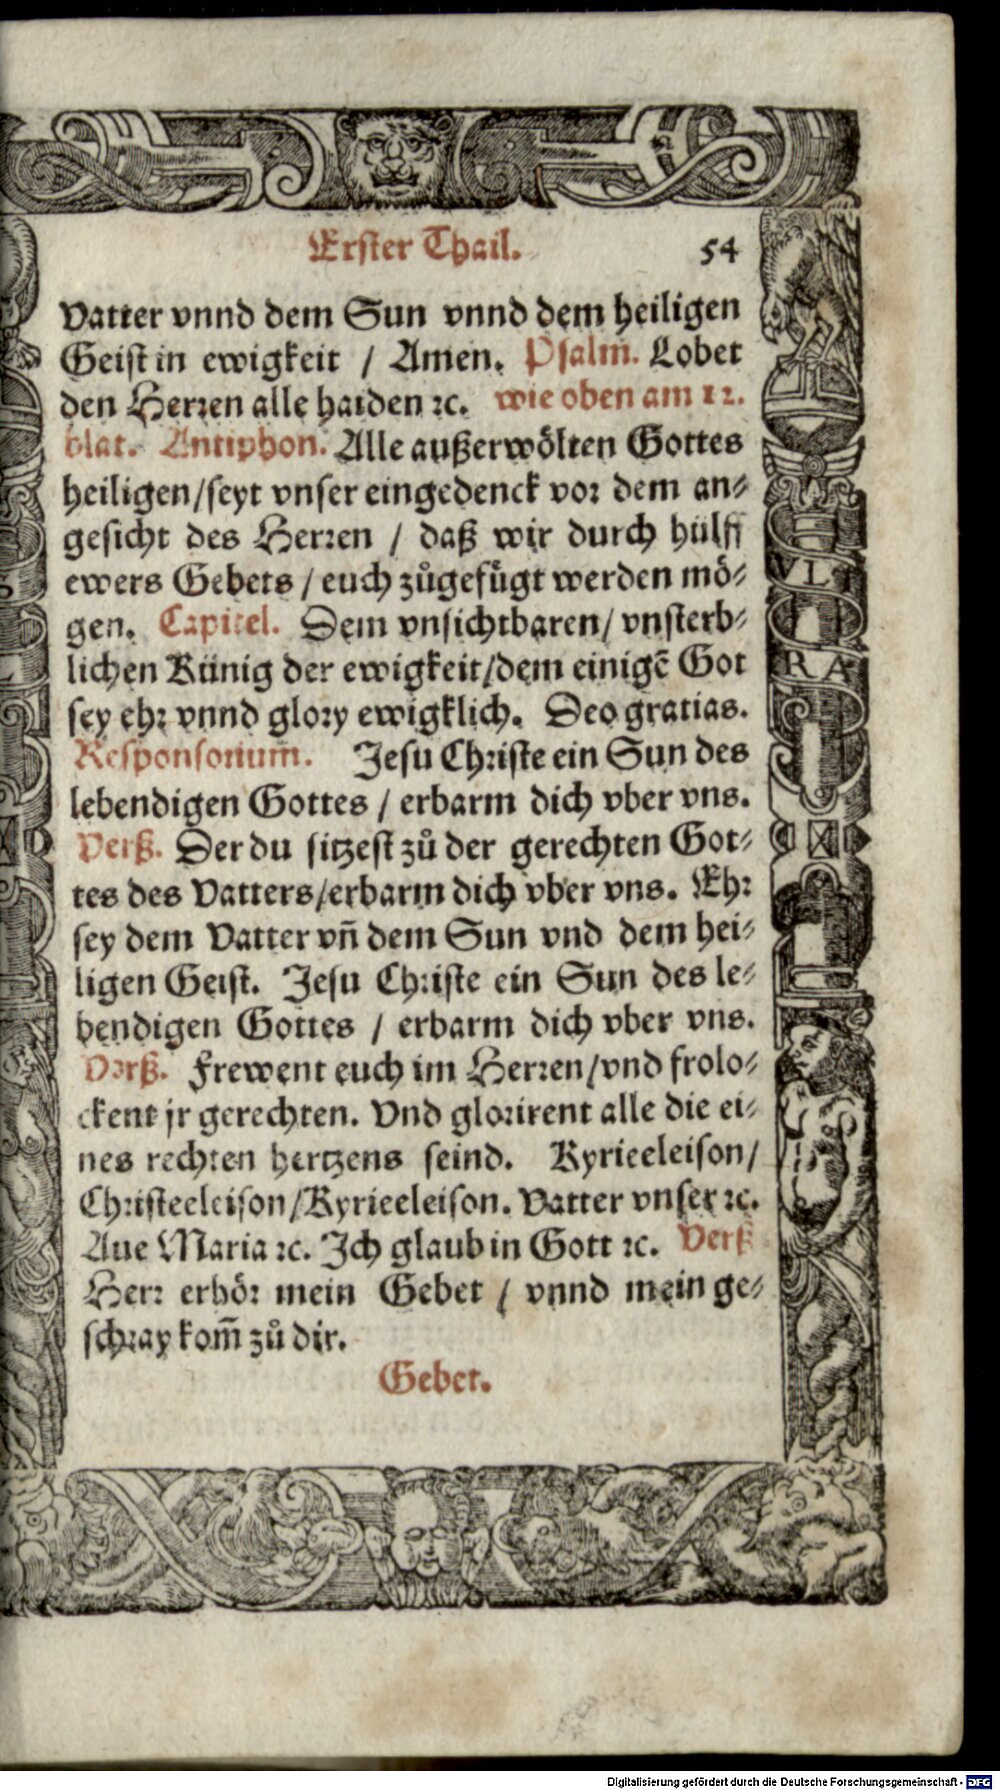 Erster Thail. 54
Vatter vnnd dem Sun vnnd dem heiligen
Geist in ewigkeit / Amen. Psalm. Lobet
den Herren alle haiden ꝛc. wie oben am 12.
blat. Antiphon. Alle außerwölten Gottes
heiligen/seyt vnser eingedenck vor dem an⸗
gesicht des Herren / daß wir durch hülff
ewers Gebets / euch zůgefügt werden mö⸗
gen. Capitel. Dem vnsichtbaren/ vnsterb⸗
lichen Künig der ewigkeit/dem einigē Got
sey ehr vnnd glory ewigklich. Deo gratias.
Responsorium. Jesu Christe ein Sun des
lebendigen Gottes / erbarm dich vber vns.
Verß. Der du sitzest zů der gerechten Got⸗
tes des Vatters/erbarm dich vber vns. Ehr
sey dem Vatter vn̄ dem Sun vnd dem hei⸗
ligen Geist. Jesu Christe ein Sun des le⸗
bendigen Gottes / erbarm dich vber vns.
Verß. Frewent euch im Herren/vnd frolo⸗
ckent jr gerechten. Vnd glorirent alle die ei⸗
nes rechten hertzens seind. Kyrieeleison/
Christeeleison/Kyrieeleison. Vatter vnser ꝛc.
Aue Maria ꝛc. Ich glaub in Gott ꝛc. Verß
Herr erhör mein Gebet / vnnd mein ge⸗
schray kom̄ zů dir.
Gebet.
VL
RA
Digitalisierung gefördert durch die Deutsche Forschungsgemeinschaft - DFG